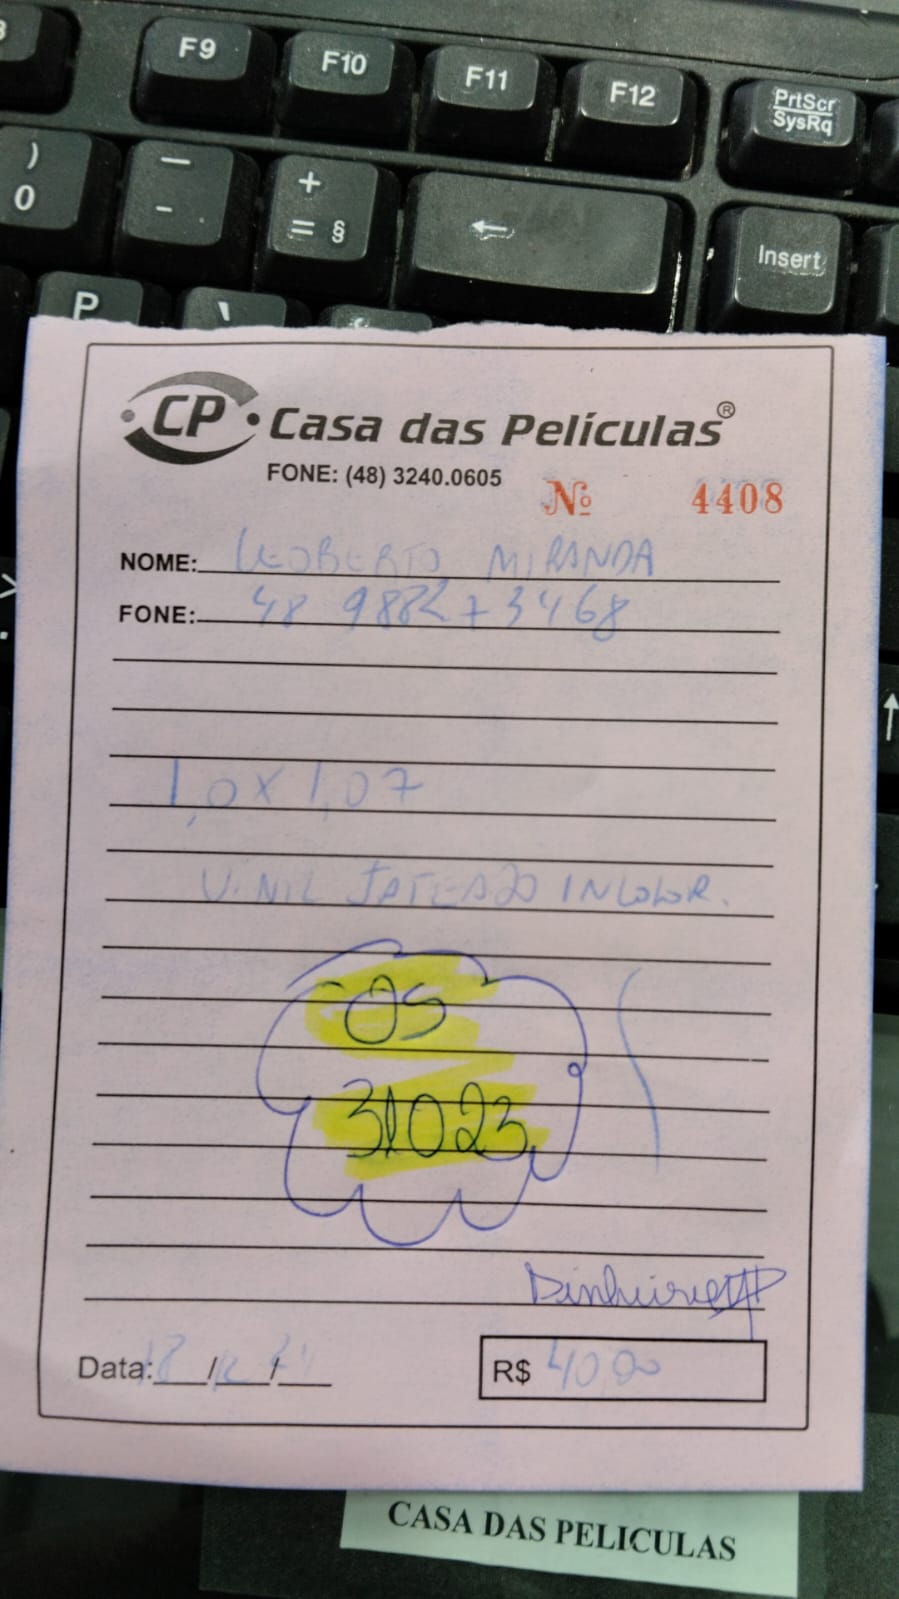 F9 F10 F11 F12 PrtScr
SysRq
) — +
0 - = § ← Insert
P
CP Casa das Películas®
FONE: (48) 3240.0605 Nº 4408
NOME: MIRANDA
FONE: 48 3468
1,0 X 1,07
VINIL JATEADO INCOLOR.
OS
31023
Dinheiro
Data: 18/12/ R$ 40,00
CASA DAS PELICULAS